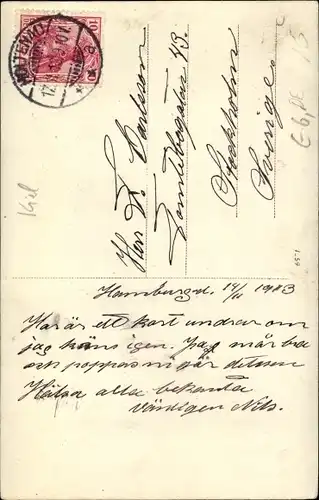 10
Kiel
Herr D. Carlsson
Tomtebogatan 43.
Stockholm
Sverige
Hamburg d. 14/11 1913
Här är ett kort undrar om
jag käns igen. Jag mår bra
och hoppas ni gör detsam
Hälsa alla bekanta
vänligen Nils.